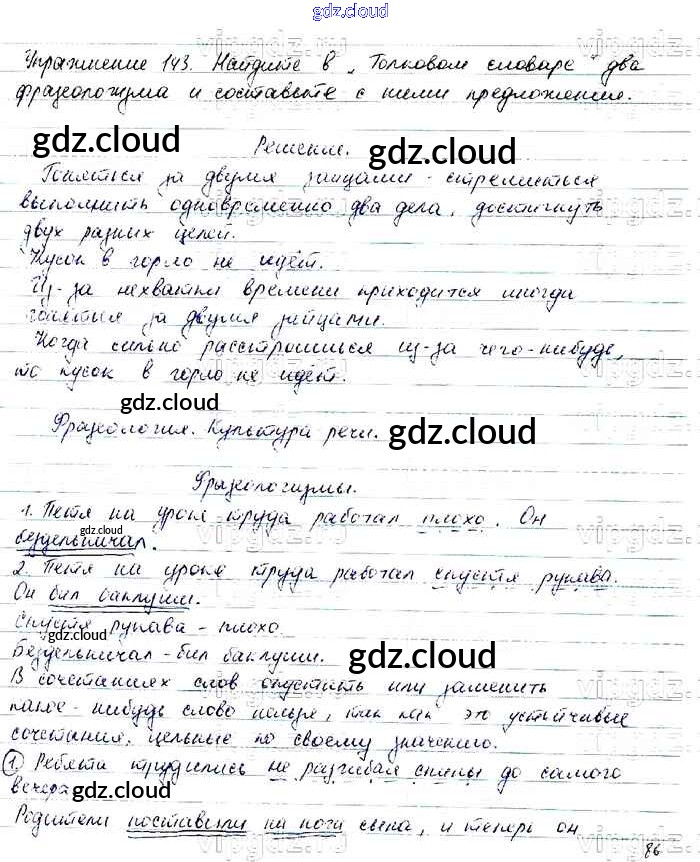 gdz.cloud
Упражнение 143. Найдите в „Толковом словаре" два
фразеологизма и составьте с ними предложения.
gdz.cloud
Решение.
gdz.cloud
Гоняться за двумя зайцами - стремиться
выполнить одновременно два дела, достигнуть
двух разных целей.
Кусок в горло не идёт.
Из-за нехватки времени приходится иногда
гоняться за двумя зайцами.
Когда сильно расстроишься из-за чего-нибудь,
то кусок в горло не идёт.
gdz.cloud
Фразеология. Культура речи.
gdz.cloud
Фразеологизмы.
1. Петя на уроке труда работал плохо. Он
gdz.cloud
бездельничал.
2. Петя на уроке труда работал спустя рукава.
Он бил баклуши.
gdz.cloud
Спустя рукава - плохо.
gdz.cloud
Бездельничал - бил баклуши.
gdz.cloud
В сочетаниях слов опустить или заменить
какое-нибудь слово нельзя, так как это устойчивые
сочетания, цельные по своему значению.
1 Ребята трудились не разгибая спины до самого
вечера
gdz.cloud
gdz.cloud
Родители поставили на ноги сына, и теперь он
86